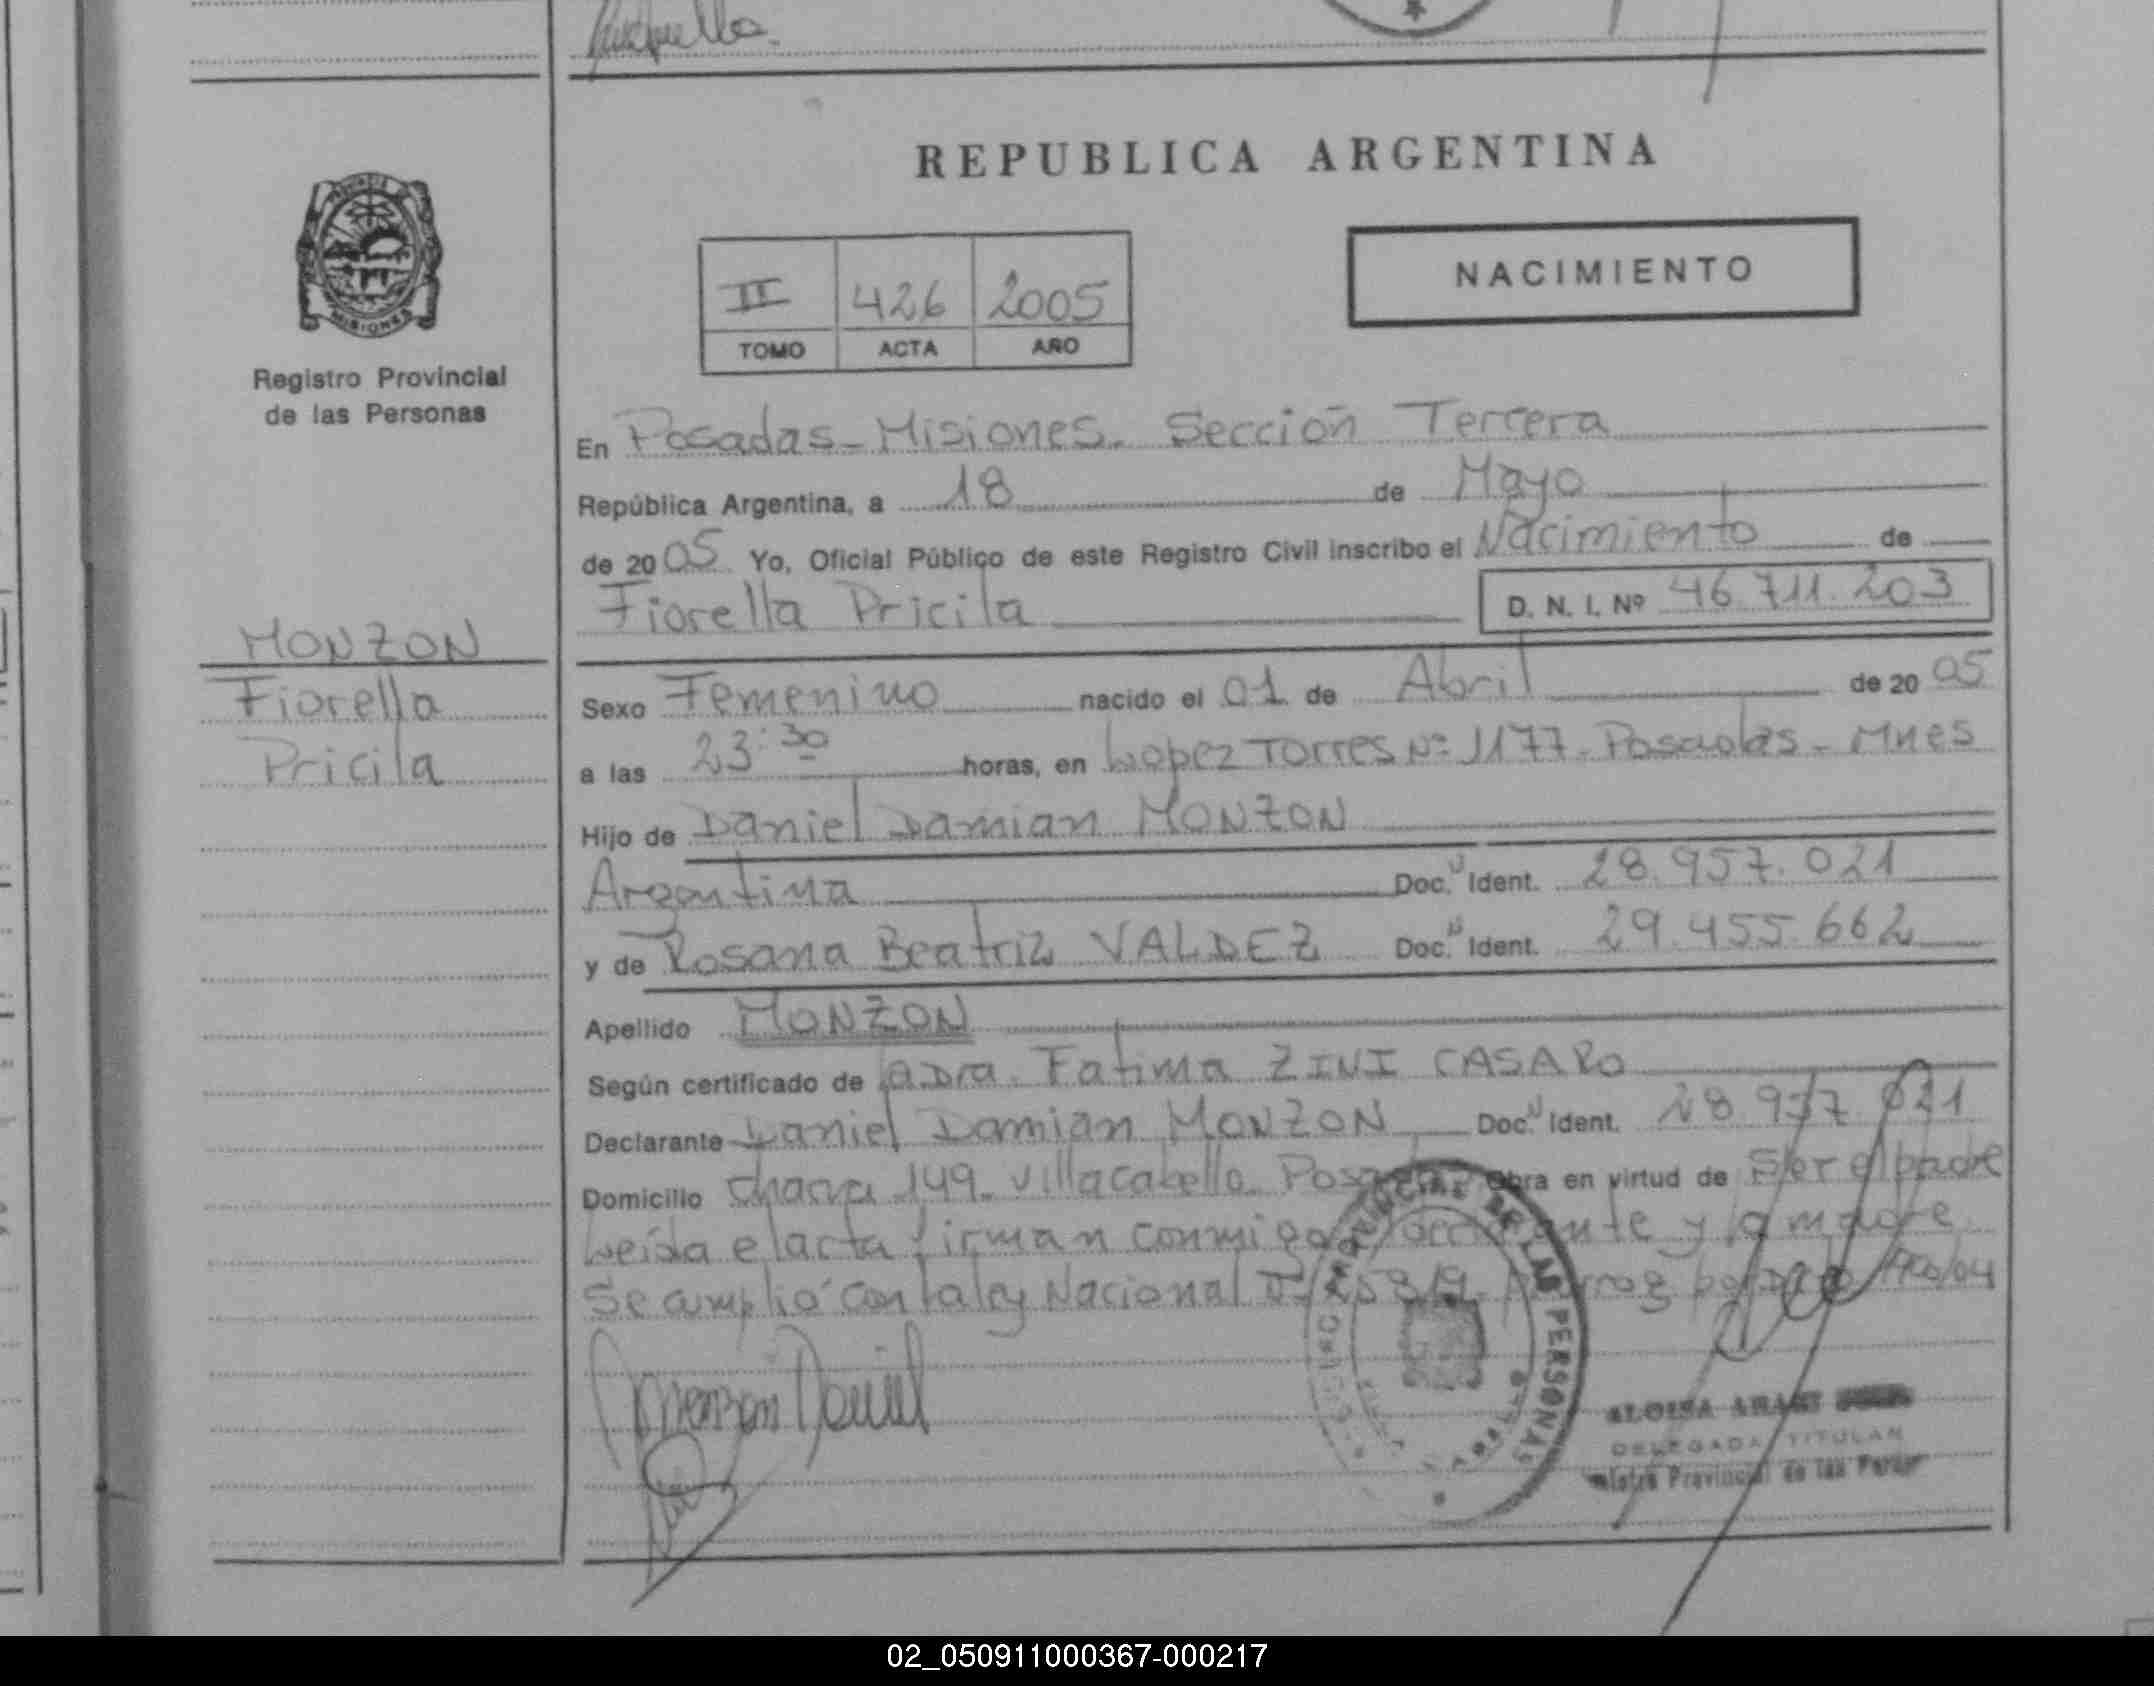 REPUBLICA ARGENTINA
NACIMIENTO
II 426 2005
TOMO ACTA AÑO
PROVINCIA DE
MISIONES
Registro Provincial
de las Personas
MONZON
Fiorella
Pricila
En Posadas - Misiones. Sección Tercera
República Argentina, a 18 de Mayo
de 2005 Yo, Oficial Público de este Registro Civil inscribo el Nacimiento de
Fiorella Pricila D. N. I. Nº 46.711.203
Sexo Femenino nacido el 01 de Abril de 2005
a las 23:30 horas, en Lopez Torres Nº 1177 - Posadas - Mnes
Hijo de Daniel Damian MONZON
Argentina Doc. Ident. 28.957.021
y de Rosana Beatriz VALDEZ Doc. Ident. 29.455.662
Apellido MONZON
Según certificado de la Dra. Fatima ZINI CASARO
Declarante Daniel Damian MONZON Doc. Ident. 28.957.021
Domicilio chacra 149. Villa cabello. Obra en virtud de Ser el padre
Leida el acta firman conmigo y la madre
Se cumplió con la ley Nacional
Monzon Daniel
DE LAS PERSONAS
DELEGADA TITULAR
Provincial de las
02_050911000367-000217